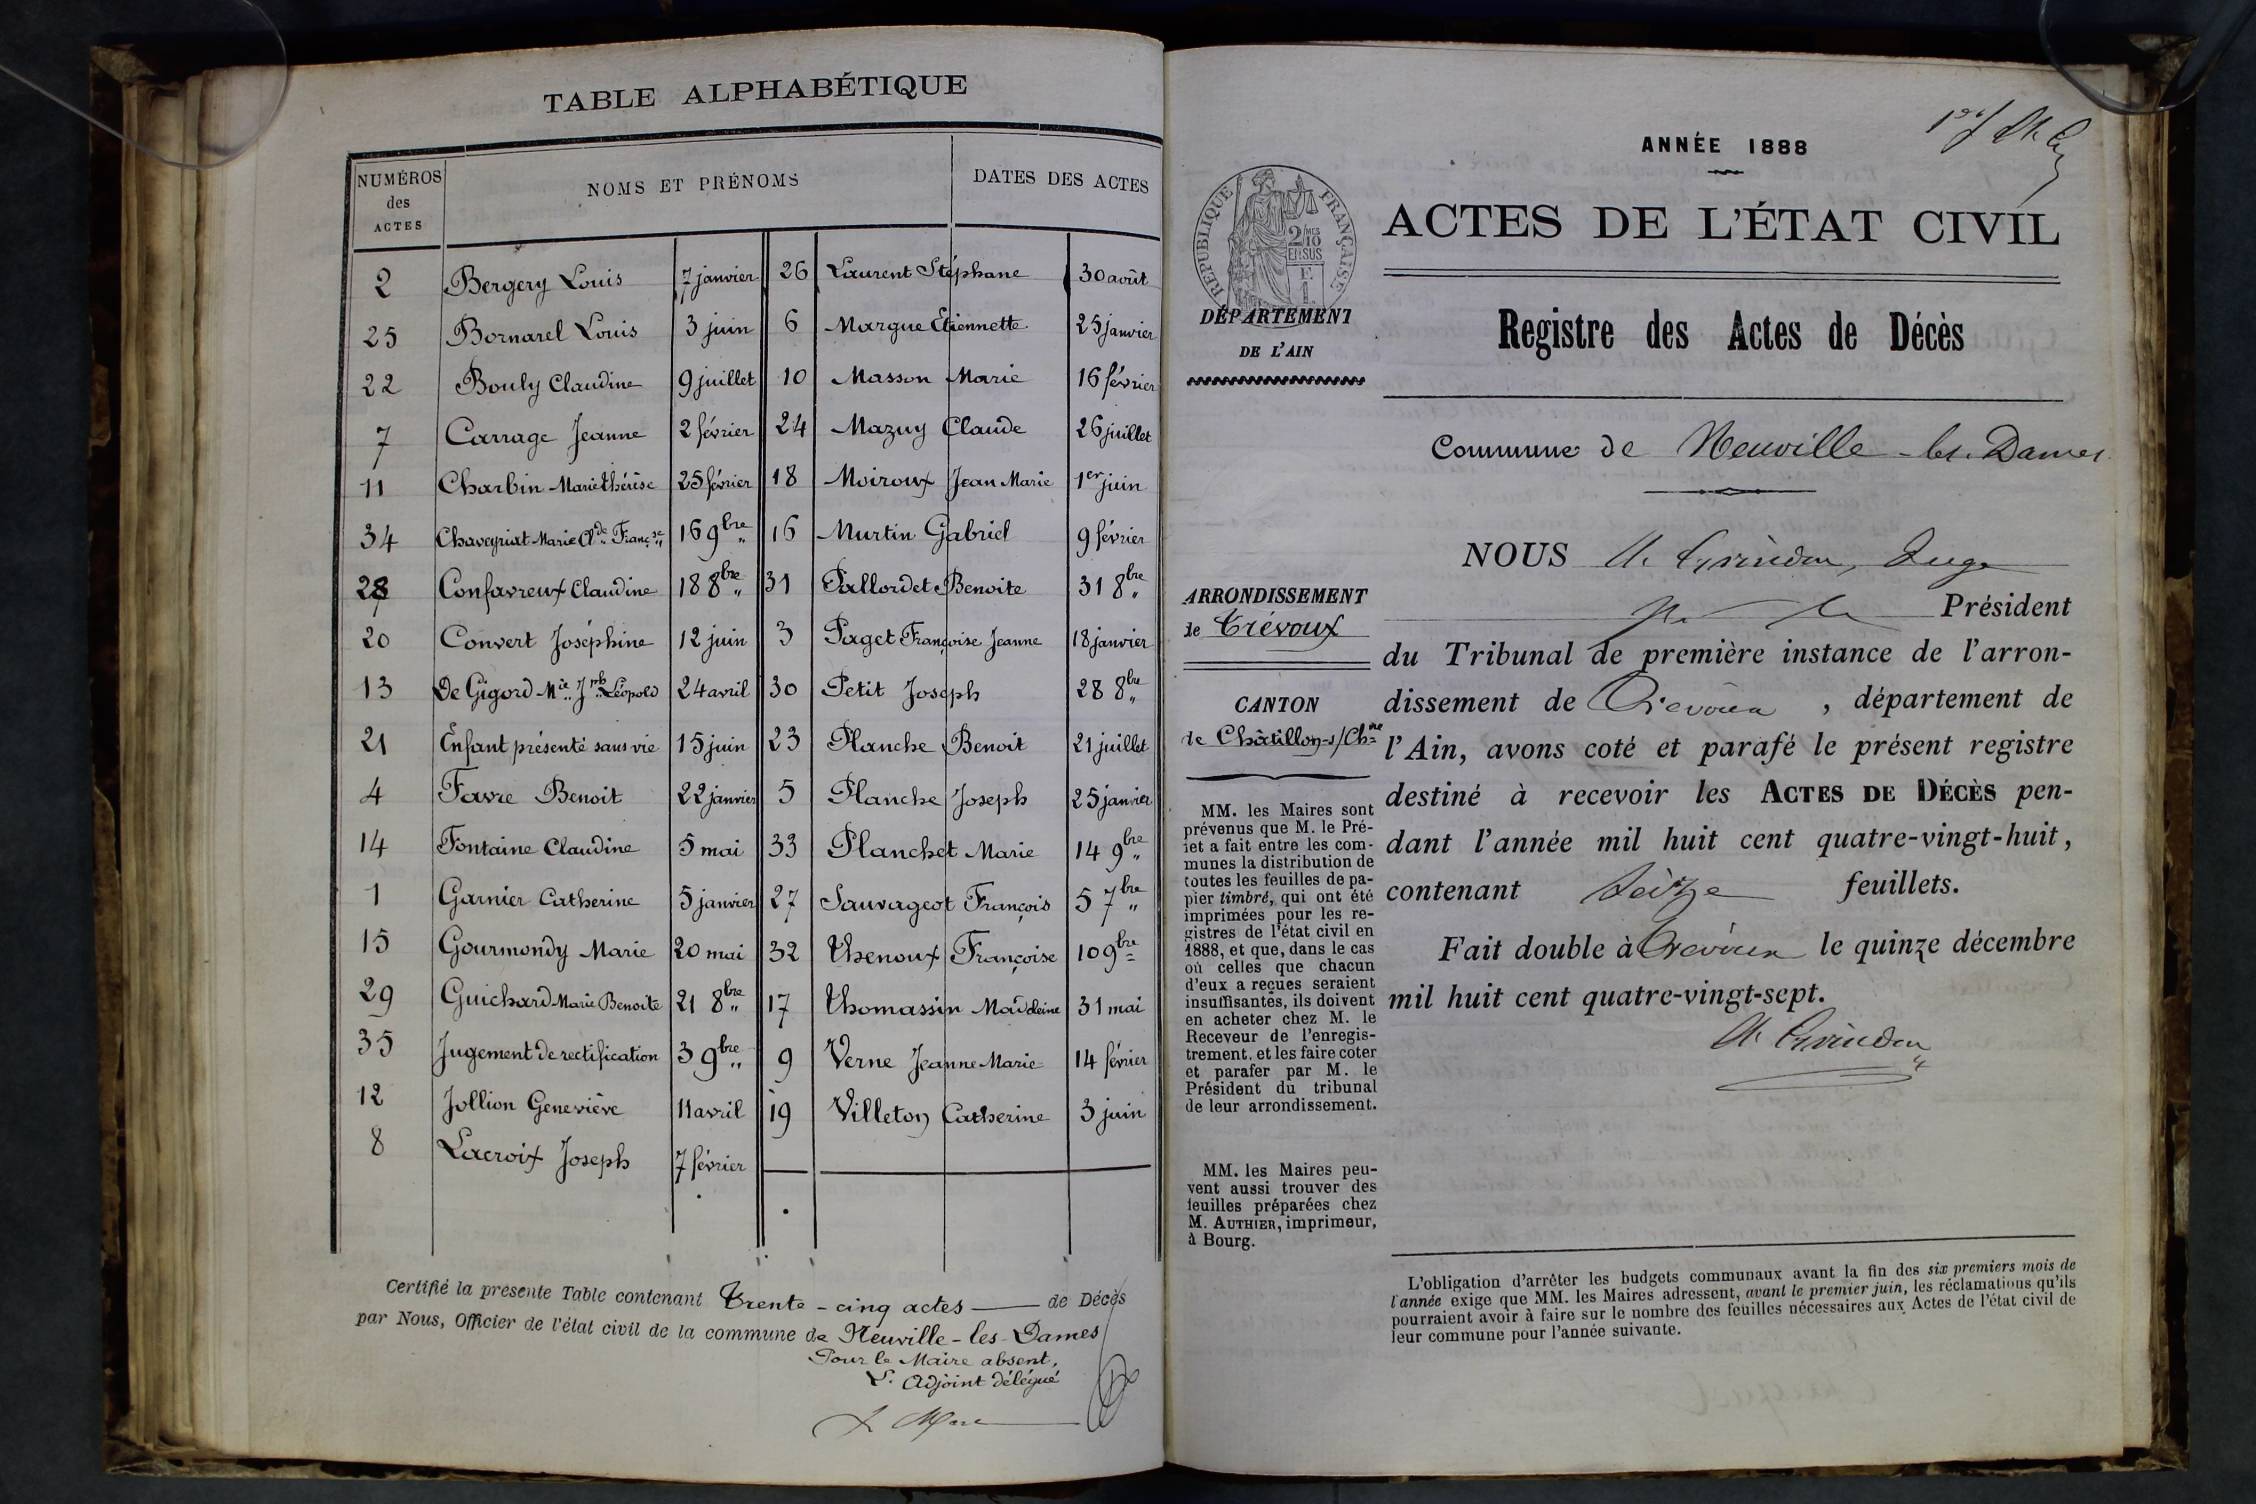 TABLE ALPHABÉTIQUE
NUMÉROS des ACTES
NOMS ET PRÉNOMS
DATES DES ACTES
2 Bergery Louis 7 janvier
25 Bornarel Louis 3 juin
22 Bouly Claudine 9 juillet
7 Carrage Jeanne 2 février
11 Charbin Marie thérèse 25 février
34 Chaveyriat Marie Clde Françse 16 9bre
28 Confavreux Claudine 18 8bre
20 Convert Joséphine 12 juin
13 De Gigord Mie Jph Léopold 24 avril
21 Enfant présenté sans vie 15 juin
4 Favre Benoit 22 janvier
14 Fontaine Claudine 5 mai
1 Garnier Catherine 5 janvier
15 Gourmondy Marie 20 mai
29 Guichard Marie Benoite 21 8bre
35 Jugement de rectification 3 9bre
12 Jollion Geneviève 11 avril
8 Lacroix Joseph 7 février
26 Laurent Stéphane 30 août
6 Margue Etiennette 25 janvier
10 Masson Marie 16 février
24 Mazuy Claude 26 juillet
18 Moiroux Jean Marie 1er juin
16 Murtin Gabriel 9 février
31 Pallordet Benoite 31 8bre
3 Paget Françoise Jeanne 18 janvier
30 Petit Joseph 28 8bre
23 Planche Benoit 21 juillet
5 Planche Joseph 25 janvier
33 Planchet Marie 14 9bre
27 Sauvageot François 5 7bre
32 Thenoux Françoise 10 9bre
17 Thomassin Madeleine 31 mai
9 Verne Jeanne Marie 14 février
19 Villeton Catherine 3 juin
Certifié la présente Table contenant Trente-cinq actes de Décès
par Nous, Officier de l'état civil de la commune de Neuville-les-Dames
Pour le Maire absent,
L'Adjoint délégué
ANNÉE 1888
ACTES DE L'ÉTAT CIVIL
RÉPUBLIQUE FRANÇAISE
2/10MES
EN SUS
DÉPARTEMENT
DE L'AIN
Registre des Actes de Décès
Commune de Neuville-les-Dames
ARRONDISSEMENT
de Trévoux
CANTON
de Châtillon-s/Chne
MM. les Maires sont
prévenus que M. le Pré-
fet a fait entre les com-
munes la distribution de
toutes les feuilles de pa-
pier timbré, qui ont été
imprimées pour les re-
gistres de l'état civil en
1888, et que, dans le cas
où celles que chacun
d'eux a reçues seraient
insuffisantes, ils doivent
en acheter chez M. le
Receveur de l'enregis-
trement, et les faire coter
et parafer par M. le
Président du tribunal
de leur arrondissement.
MM. les Maires peu-
vent aussi trouver des
feuilles préparées chez
M. AUTHIER, imprimeur,
à Bourg.
NOUS Juge
Président
du Tribunal de première instance de l'arron-
dissement de Trévoux, département de
l'Ain, avons coté et parafé le présent registre
destiné à recevoir les ACTES DE DÉCÈS pen-
dant l'année mil huit cent quatre-vingt-huit,
contenant seize feuillets.
Fait double à Trévoux le quinze décembre
mil huit cent quatre-vingt-sept.
L'obligation d'arrêter les budgets communaux avant la fin des six premiers mois de
l'année exige que MM. les Maires adressent, avant le premier juin, les réclamations qu'ils
pourraient avoir à faire sur le nombre des feuilles nécessaires aux Actes de l'état civil de
leur commune pour l'année suivante.